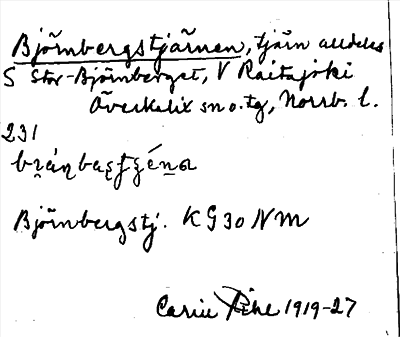 Björnbergstjärnen, tjärn alldeles
S Stor-Björnberget, V Raitajoki
Överkalix sn o. tg, Norrb. l.
231
Björnbergstj. KG 30 NM
Carin Pihl 1919-27